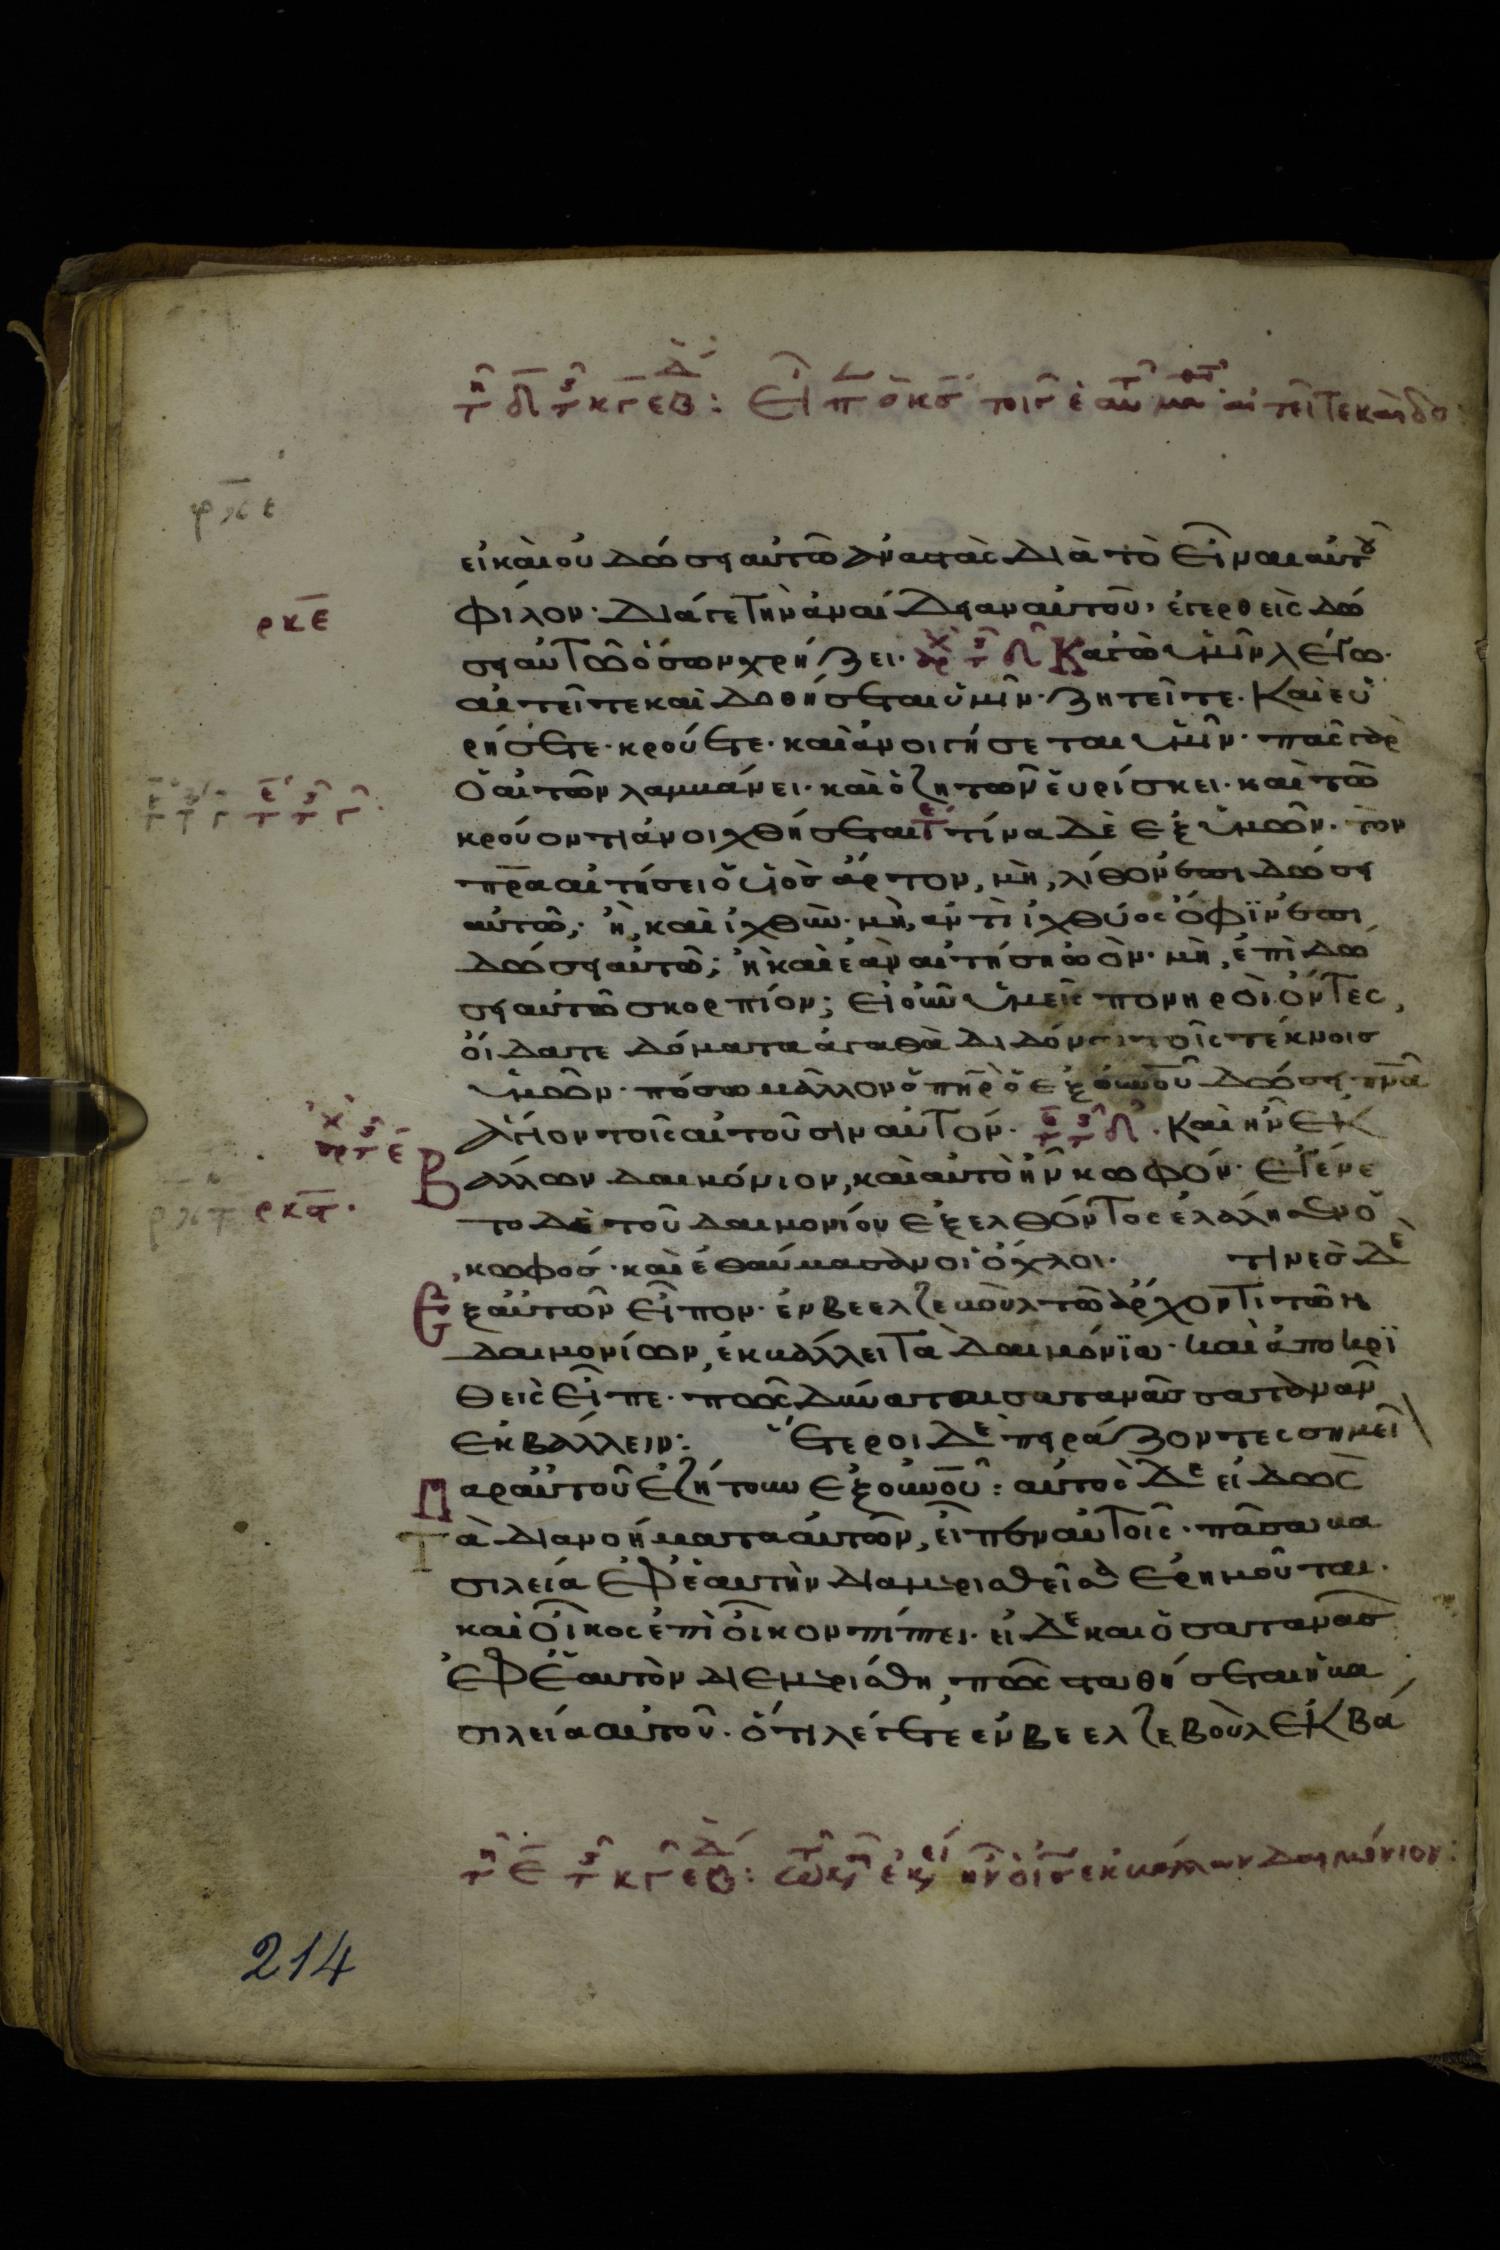 εἰ καὶ οὐ δώσῃ αὐτῶ ἀναστὰς διὰ τὸ εἶναι αὐτοῦ
φίλον· διά γε τὴν ἀναίδηαν αὐτοῦ, ἐγερθεὶς δώ
σῃ αὐτῶ ὅσων χρήζει. Κἀγὼ ὑμῖν λέγω.
αἰτεῖτε καὶ δοθήσεται ὑμῖν· ζητεῖτε. καὶ εὑ
ρήσετε· κρούετε. καὶ ἀνοιγήσεται ὑμῖν· πᾶς γὰρ
ὁ αἰτῶν λαμβάνει. καὶ ὁ ζητῶν εὑρίσκει. καὶ τῶ
κρούοντι ἀνοιχθήσεται τίνα δὲ ἐξ ὑμῶν. τὸν
πρα αἰτήσει ὁ υἱὸς ἄρτον, μὴ, λίθον ἐπι δώσῃ
αὐτῶ; ἢ, καὶ ἰχθῦν· μὴ, ἀντὶ ἰχθύος ὄφιν ἐπι
δώσῃ αὐτῶ; ἢ καὶ ἐὰν αἰτήσῃ ὠόν· μὴ, ἐπὶ δώ
σῃ αὐτῶ σκορπίον; εἰ οὖν ὑμεῖς πονηροὶ ὄντες,
οἴδατε δόματα ἀγαθὰ διδόναι τοῖς τέκνοις
ὑμῶν· πόσω μᾶλλον ὁ πηρ ὁ ἐξ οὐνοῦ δώσῃ πνα
ἅγιον τοῖς αἰτοῦσιν αὐτόν. Καὶ ἦν ἐκ
βάλλων δαιμόνιον, καὶ αὐτὸ ἦν κωφόν· ἐγένε
το δὲ τοῦ δαιμονίου ἐξελθόντος ἐλάλησεν ὁ
κωφός· καὶ ἐθαύμασαν οἱ ὄχλοι. τινὲς δὲ
ἐξ αὐτῶν εἶπον· ἐν βεελζεβοὺλ τῶ ἄρχοντι τῶν
δαιμονίων, ἐκβάλλει τὰ δαιμόνια· καὶ ἀποκρι
θεὶς εἶπε· πῶς δύναται σατανᾶς σατανᾶν
ἐκβάλλειν: Ἕτεροι δὲ πηράζοντες σημεῖ
παρ αὐτοῦ ἐζήτουν ἐξ οὐνοῦ: αὐτὸς δὲ εἰδὼς
τὰ διανοήματα αὐτῶν, εἶπεν αὐτοῖς· πᾶσα βα
σιλεία ἐφ ἑαυτὴν διαμερισθεῖσα ἐρημοῦται.
καὶ οἶκος ἐπὶ οἶκον πίπτει. εἰ δὲ καὶ ὁ σατανᾶς
ἐφ ἑαυτὸν διεμερίσθη, πῶς σταθήσεται ἡ βα
σιλεία αὐτοῦ. ὅτι λέγετε ἐν βεελζεβοὺλ ἐκβά
ρκε
ρκϛ
214